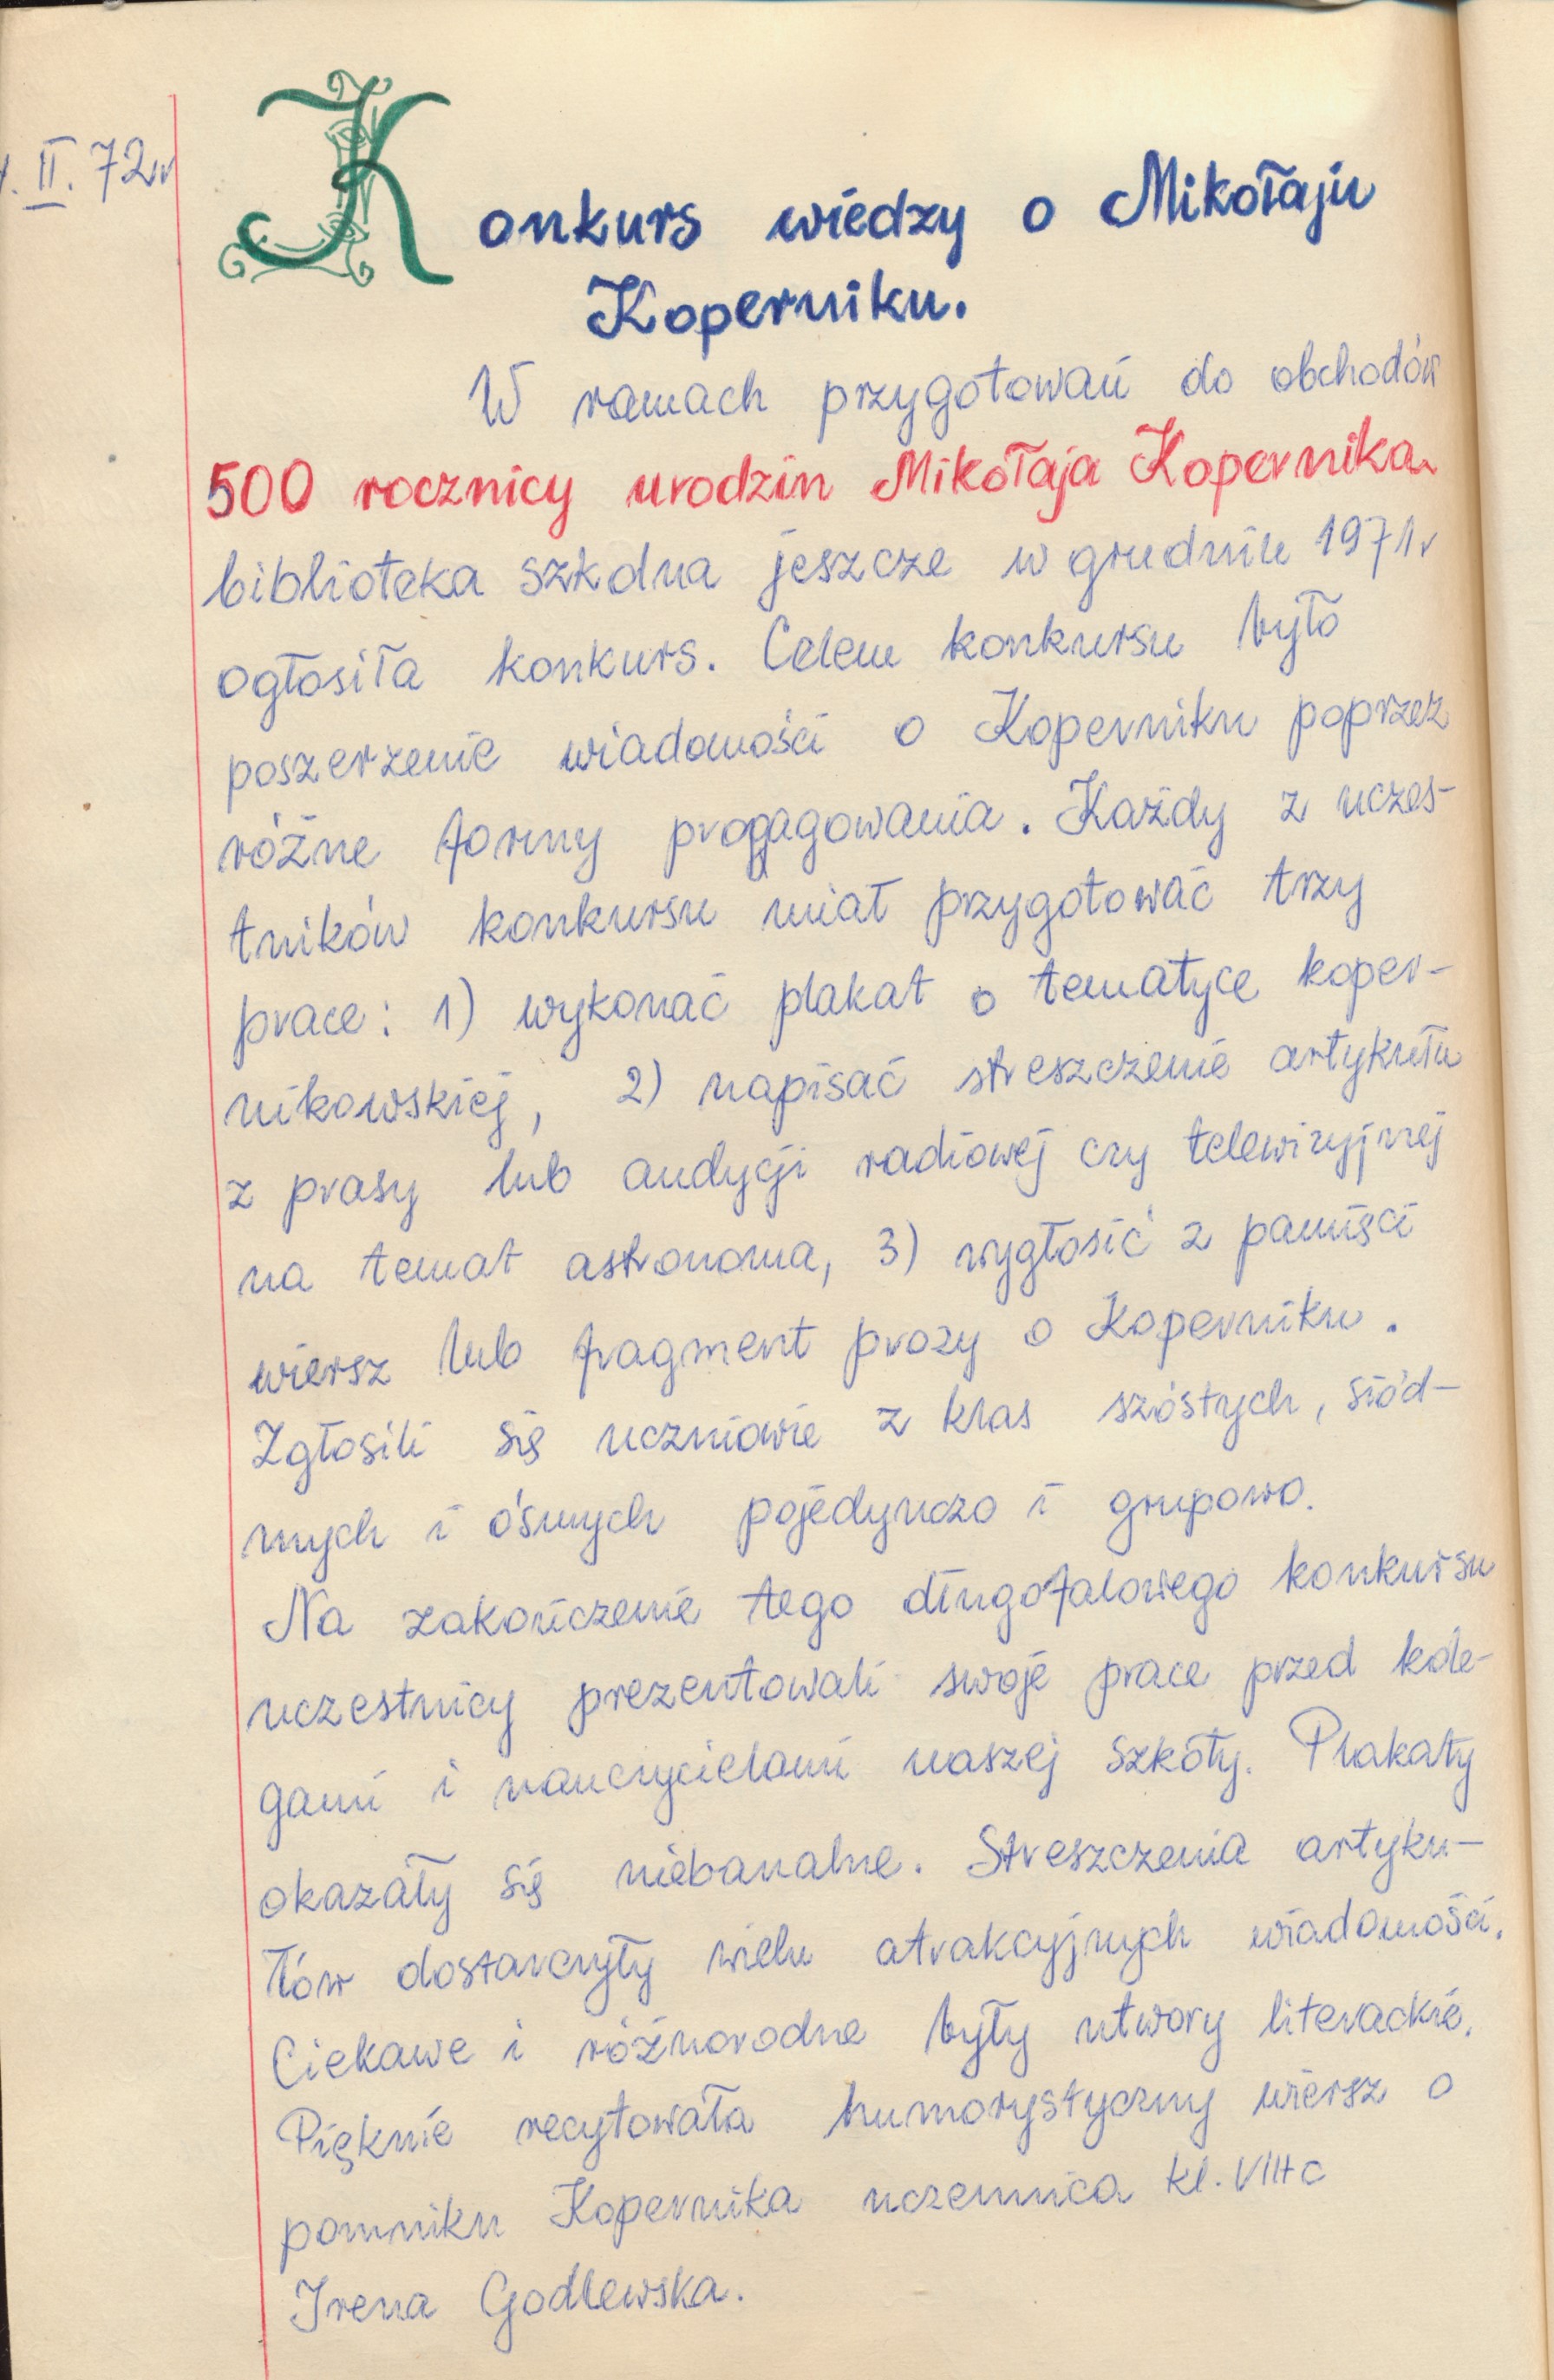 . II. 72r
Konkurs wiedzy o Mikołaju
Koperniku.
W ramach przygotowań do obchodów
500 rocznicy urodzin Mikołaja Kopernika
biblioteka szkolna jeszcze w grudniu 1971r
ogłosiła konkurs. Celem konkursu było
poszerzenie wiadomości o Koperniku poprzez
różne formy propagowania. Każdy z uczes-
tników konkursu miał przygotować trzy
prace: 1) wykonać plakat o tematyce koper-
nikowskiej, 2) napisać streszczenie artykułu
z prasy lub audycji radiowej czy telewizyjnej
na temat astronoma, 3) wygłosić z pamięci
wiersz lub fragment prozy o Koperniku.
Zgłosili się uczniowie z klas szóstych, siód-
mych i ósmych pojedynczo i grupowo.
Na zakończenie tego długofalowego konkursu
uczestnicy prezentowali swoje prace przed kole-
gami i nauczycielami naszej szkoły. Plakaty
okazały się niebanalne. Streszczenia artyku-
łów dostarczyły wielu atrakcyjnych wiadomości.
Ciekawe i różnorodne były utwory literackie.
Pięknie recytowała humorystyczny wiersz o
pomniku Kopernika uczennica kl. VIII c
Irena Godlewska.